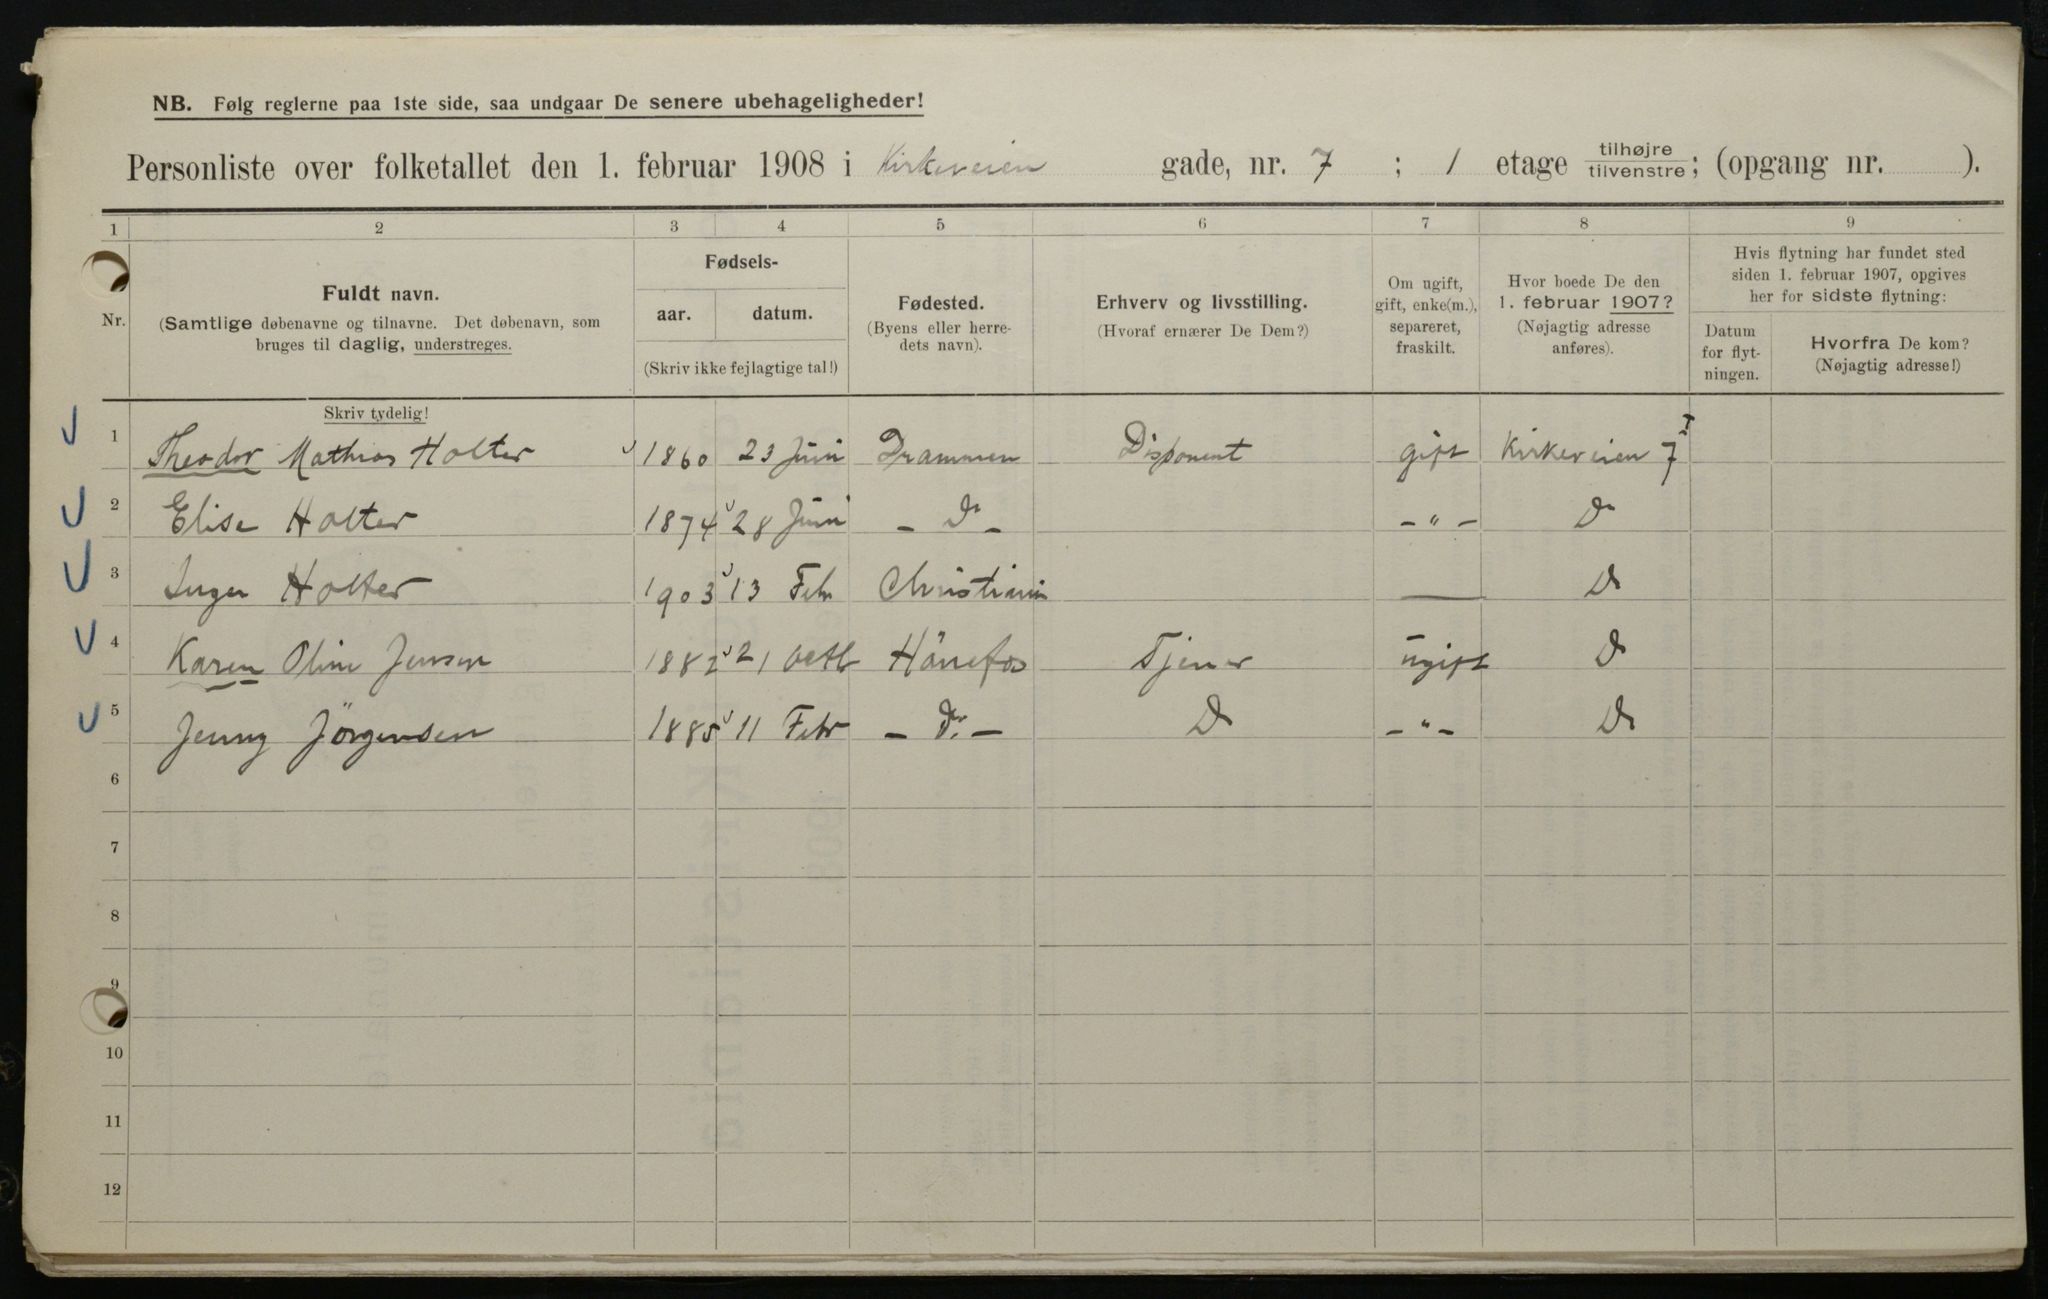 NB. Følg reglerne paa 1ste side, saa undgaar De senere ubehageligheder!
Personliste over folketallet den 1. februar 1908 i Kirkeveien gade, nr. 7 ; 1 etage tilhøjre tilvenstre; (opgang nr. ).
1 2 3 4 5 6 7 8 9
Nr.
Fuldt navn.
(Samtlige døbenavne og tilnavne. Det døbenavn, som
bruges til daglig, understreges.
Fødsels-
aar. datum.
(Skriv ikke fejlagtige tal!)
Fødested.
(Byens eller herre-
dets navn).
Erhverv og livsstilling.
(Hvoraf ernærer De Dem?)
Om ugift,
gift, enke(m.),
separeret,
fraskilt.
Hvor boede De den
1. februar 1907?
(Nøjagtig adresse
anføres).
Hvis flytning har fundet sted
siden 1. februar 1907, opgives
her for sidste flytning:
Datum
for flyt-
ningen.
Hvorfra De kom?
(Nøjagtig adresse!)
Skriv tydelig!
1 Theodor Mathias Holter 1860 23 Juni Drammen Disponent gift Kirkeveien 7 I
2 Elise Holter 1874 28 Juni - Do - - " - Do
3 Inger Holter 1903 13 Febr Christiania — Do
4 Karen Oline Jensen 1882 21 Octb Hönefos Tjener ugift Do
5 Jenny Jörgensen 1885 11 Febr - Do - Do - " - Do
6
7
8
9
10
11
12